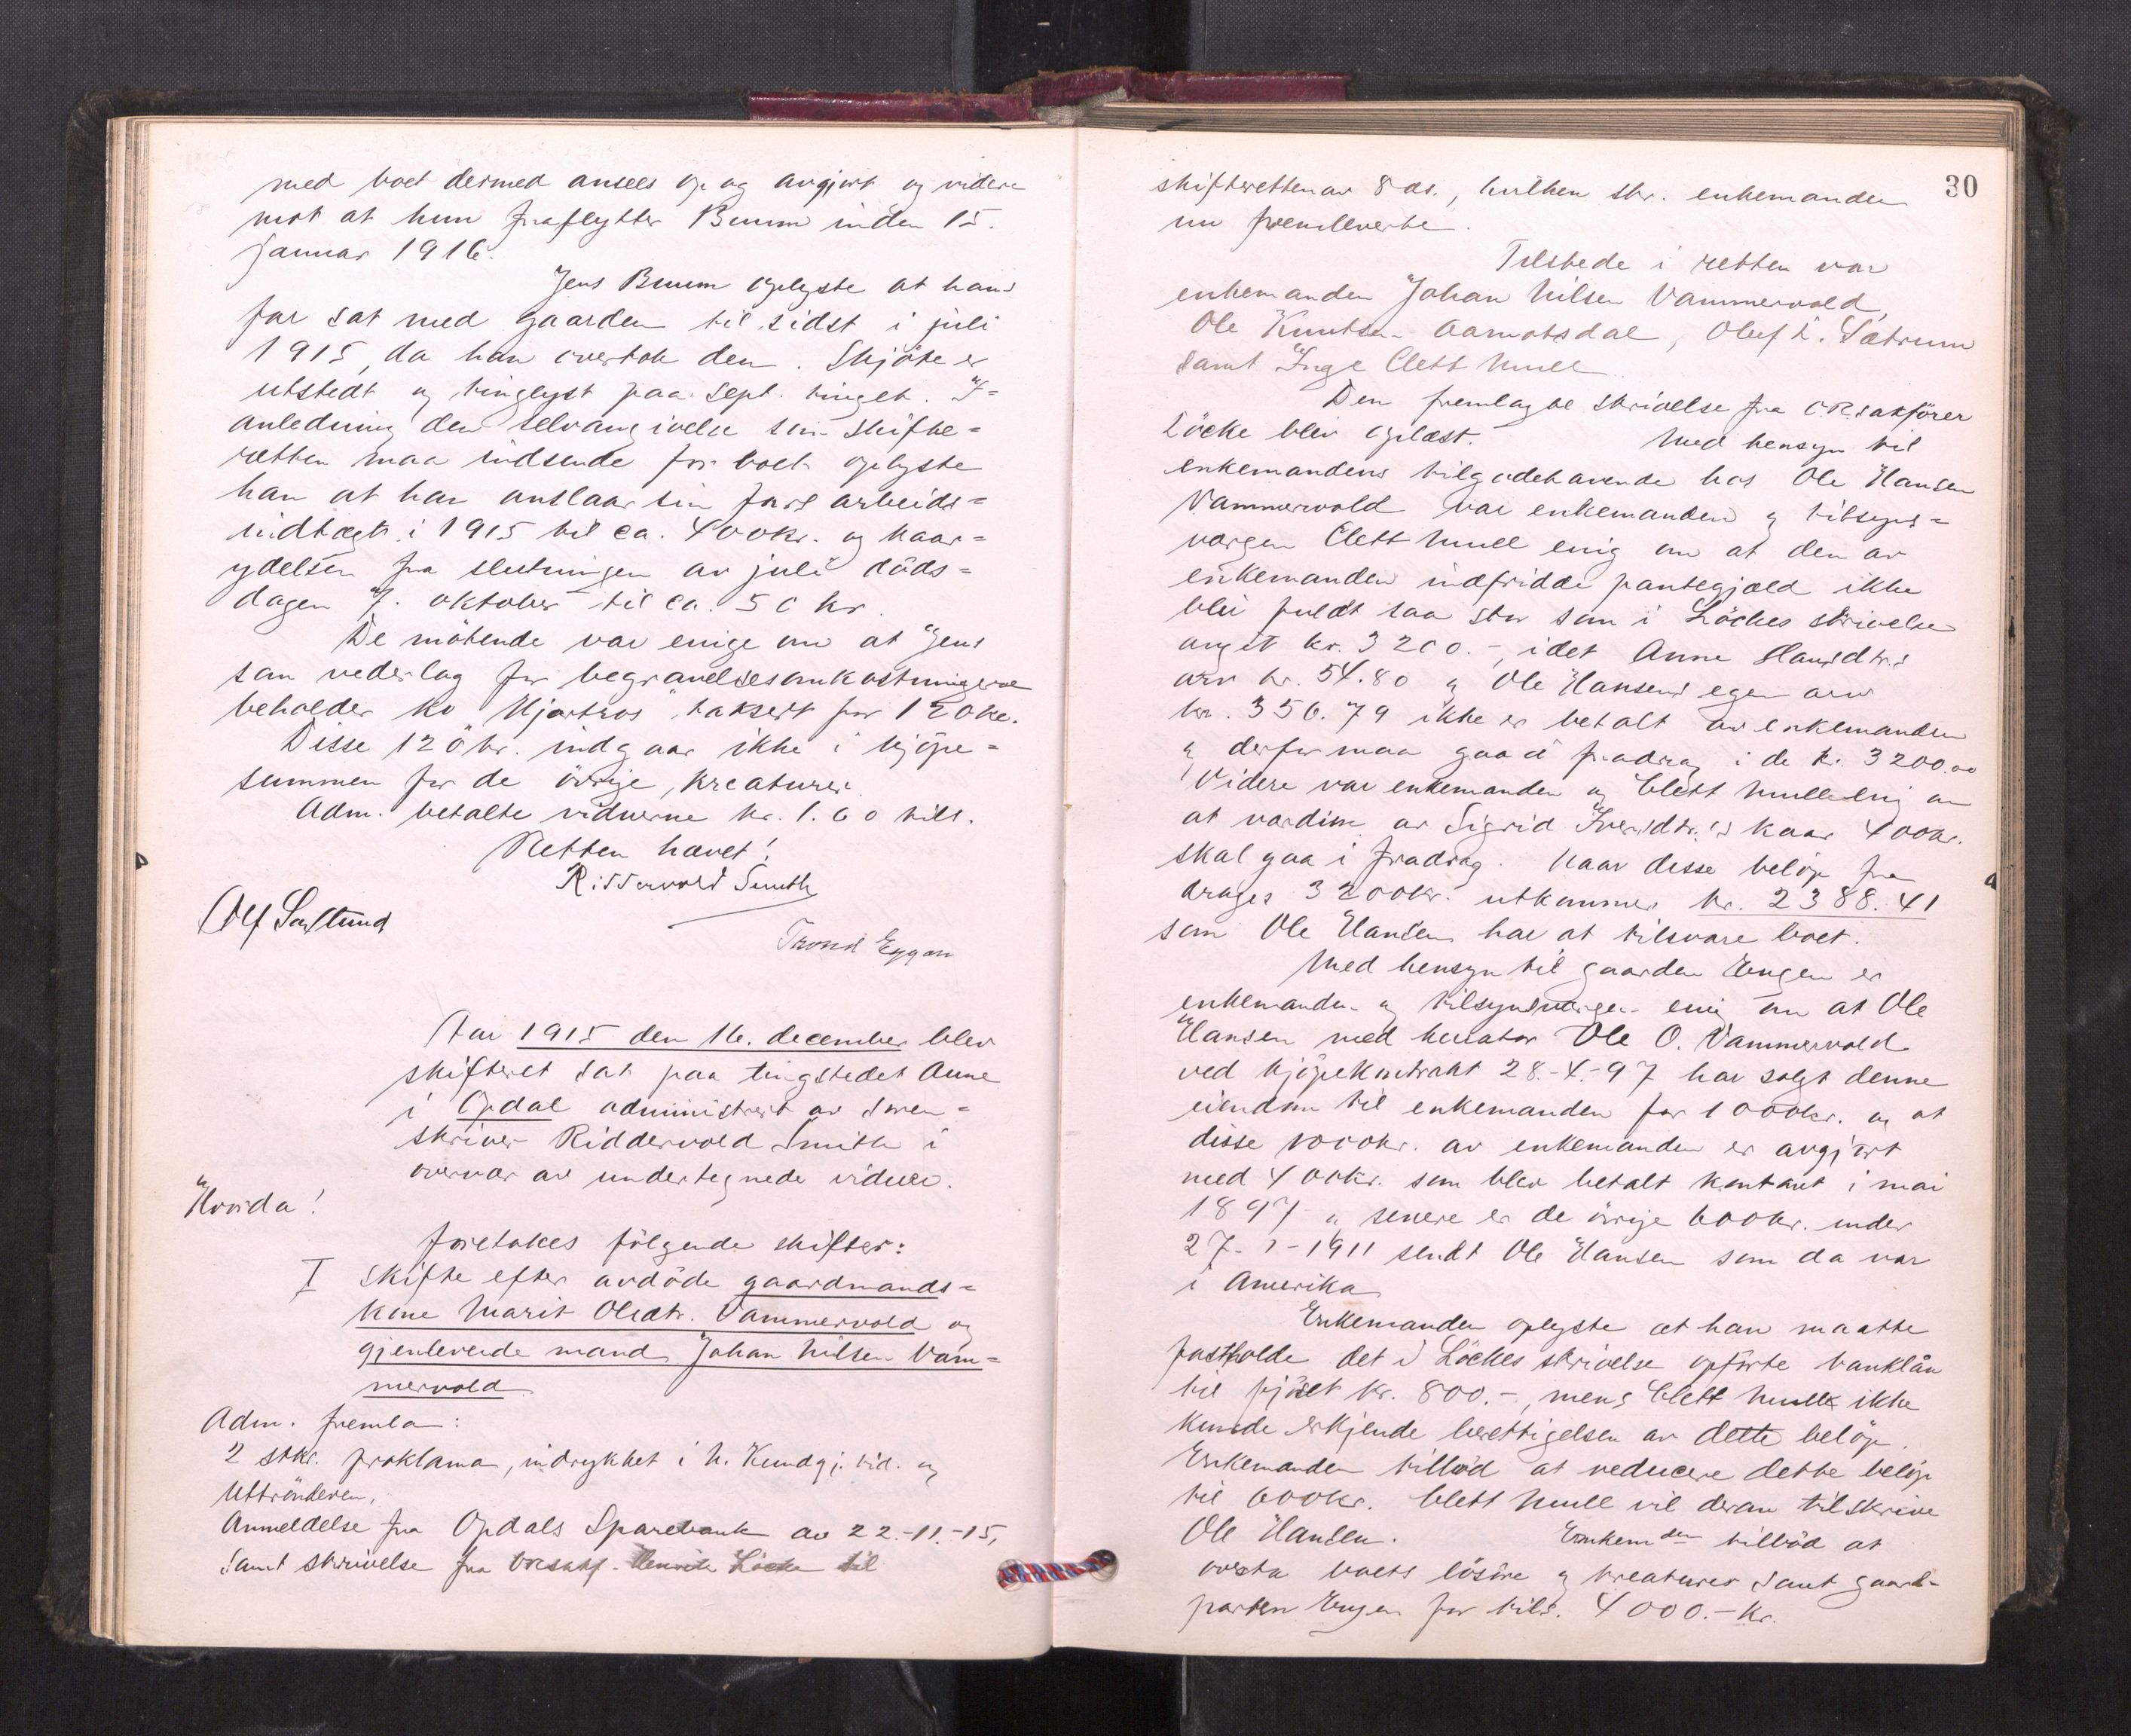 med boet dermed ansees op og avgjort og videre
mot at hun fraflytter Buum inden 15.
januar 1916.
Jens Buum oplyste at hans
far sat med gaarden til sidst i juli
1915, da han overtok den. Skjøte er
utstedt og tinglyst paa sept. tinget. I
anledning den selvangivelse som skifte=
retten maa indsende for boet oplyste
han at han anslaar sin fars arbeids=
indtægt i 1915 til ca. 400 kr. og kaar=
ydelsen fra slutningen av juli døds=
dagen 7. oktober til ca. 50 kr.
De møtende var enige om at Jens
som vederlag for begravelsesomkostningerne
beholder ko "Hjertros" taksert for 120 kr.
Disse 120 kr. indgaar ikke i kjøpe=
summen for de øvrige kreaturer.
Adm. betalte vidnerne kr. 1.60 tils.
Retten hævet!
Riddervold Smith
Trond Eggan
Aar 1915 den 16. december blev
skifteret sat paa tingstedet Aune
i Opdal administrert av soren=
skriver Riddervold Smith i
overvær av undertegnede vidner.
Hvorda!
foretokes følgende skifter:
I Skifte efter avdøde gaardmands=
kone Marit Olsdtr. Vammervold og
gjenlevende mand Johan Nilsen Vam=
mervold.
Adm. fremla:
2 stkr. proklama, indrykket i N. Kundgj. tid. og
Uttrønderen,
Anmeldelse fra Opdals Sparebank av 22.-11.-15,
samt skrivelse fra Løcke til
30
skifteretten av 8 ds., hvilken skr. enkemanden
nu fremleverte.
Tilstede i retten var
enkemanden Johan Nilsen Vammervold,
Ole Knutsen Aamotsdal, Oluf L. Sætrum
samt Inge Clett Mull
Den fremlagte skrivelse fra O.R.sakfører
Löcke blev oplæst. Med hensyn til
enkemandens tilgodehavende hos Ole Hansen
Vammervold var enkemanden og tilsyns=
vergen Clett Mull enig om at den av
enkemanden indfridde pantegjæld ikke
blir fuldt saa stor som i Löckes skrivelse
angit kr. 3200.-, idet Anne Hansdtr.s
arv kr. 54.80 og Ole Hansens egen arv
kr. 356.79 ikke er betalt av enkemanden
og derfor maa gaa i fradrag i de kr. 3200.00
Videre var enkemanden og Clett Mull enig om
at værdien av Sigrid Iversdtr.s kaar 400 kr.
skal gaa i fradrag. Naar disse beløp fra
drages 3200 kr. utkommer kr. 2388.41
som Ole Hansen har at tilsvare boet.
Med hensyn til gaarden Engen er
enkemanden og tilsynsvergen enig om at Ole
Hansen med kurator Ole O. Vammervold
ved kjøpekontrakt 28.-4.-97 har solgt denne
eiendom til enkemanden for 1000 kr. og at
disse 1000 kr. av enkemanden er avgjort
med 400 kr. som blev betalt kontant i mai
1897 og senere er de øvrige 600 kr. under
27-1-1911 sendt Ole Hansen som da var
i Amerika
Enkemanden oplyste at han maatte
fastholde det i Löckes skrivelse opførte banklån
til fjøset kr. 800.-, mens Clett Mull ikke
kunde erkjende berettigelsen av dette beløp.
Enkemanden tilbød at reducere dette beløp
til 600 kr. Clett Mull vil derom tilskrive
Ole Hansen. Enkemden tilbød at
overta boets løsøre og kreaturer samt gaard-
parten Engen for tils. 4000.- kr.